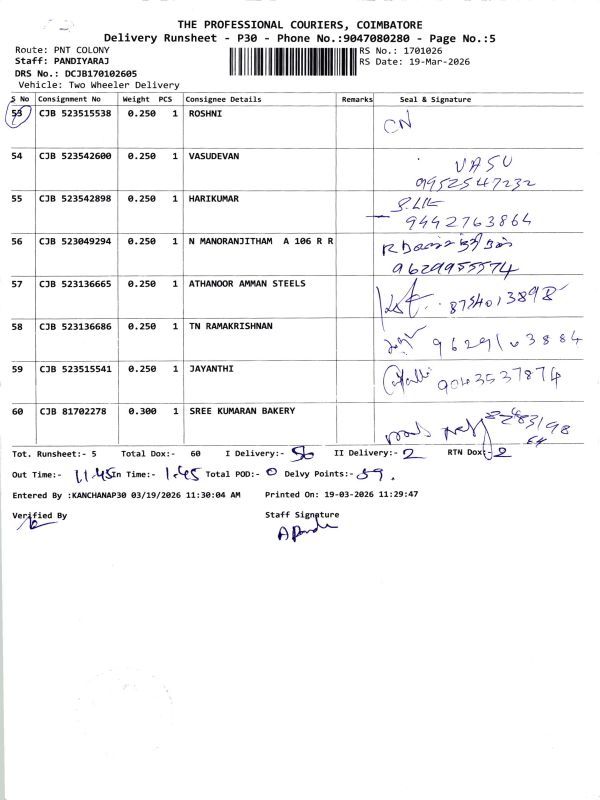 THE PROFESSIONAL COURIERS, COIMBATORE
Delivery Runsheet - P30 - Phone No.:9047080280 - Page No.:5
Route: PNT COLONY RS No.: 1701026
Staff: PANDIYARAJ RS Date: 19-Mar-2026
DRS No.: DCJB170102605
Vehicle: Two Wheeler Delivery
S No Consignment No Weight PCS Consignee Details Remarks Seal & Signature
53 CJB 523515538 0.250 1 ROSHNI CN
54 CJB 523542600 0.250 1 VASUDEVAN VASU
9952547232
55 CJB 523542898 0.250 1 HARIKUMAR
9442763864
56 CJB 523049294 0.250 1 N MANORANJITHAM A 106 R R
9629955574
57 CJB 523136665 0.250 1 ATHANOOR AMMAN STEELS 8754013898
58 CJB 523136686 0.250 1 TN RAMAKRISHNAN 9629163884
59 CJB 523515541 0.250 1 JAYANTHI 9043537874
60 CJB 81702278 0.300 1 SREE KUMARAN BAKERY
Tot. Runsheet:- 5 Total Dox:- 60 I Delivery:- 56 II Delivery:- 2 RTN Dox:- 2
Out Time:- 11.45 In Time:- 1.45 Total POD:- 0 Delvy Points:- 59.
Entered By :KANCHANAP30 03/19/2026 11:30:04 AM Printed On: 19-03-2026 11:29:47
Verified By Staff Signature